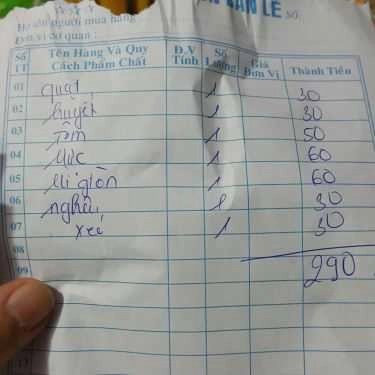 ĐƠN BÁN LẺ Số
Họ tên người mua hàng
Đơn vị cơ quan :
Số TT Tên Hàng Và Quy Cách Phẩm Chất Đ.V Tính Số Lượng Giá Đơn Vị Thành Tiền
01 quạt 1 30
02 huyết 1 30
03 Tôm 1 50
04 Mực 1 60
05 Mì giòn 1 60
06 nghêu 1 30
07 xá 1 30
08 290
09